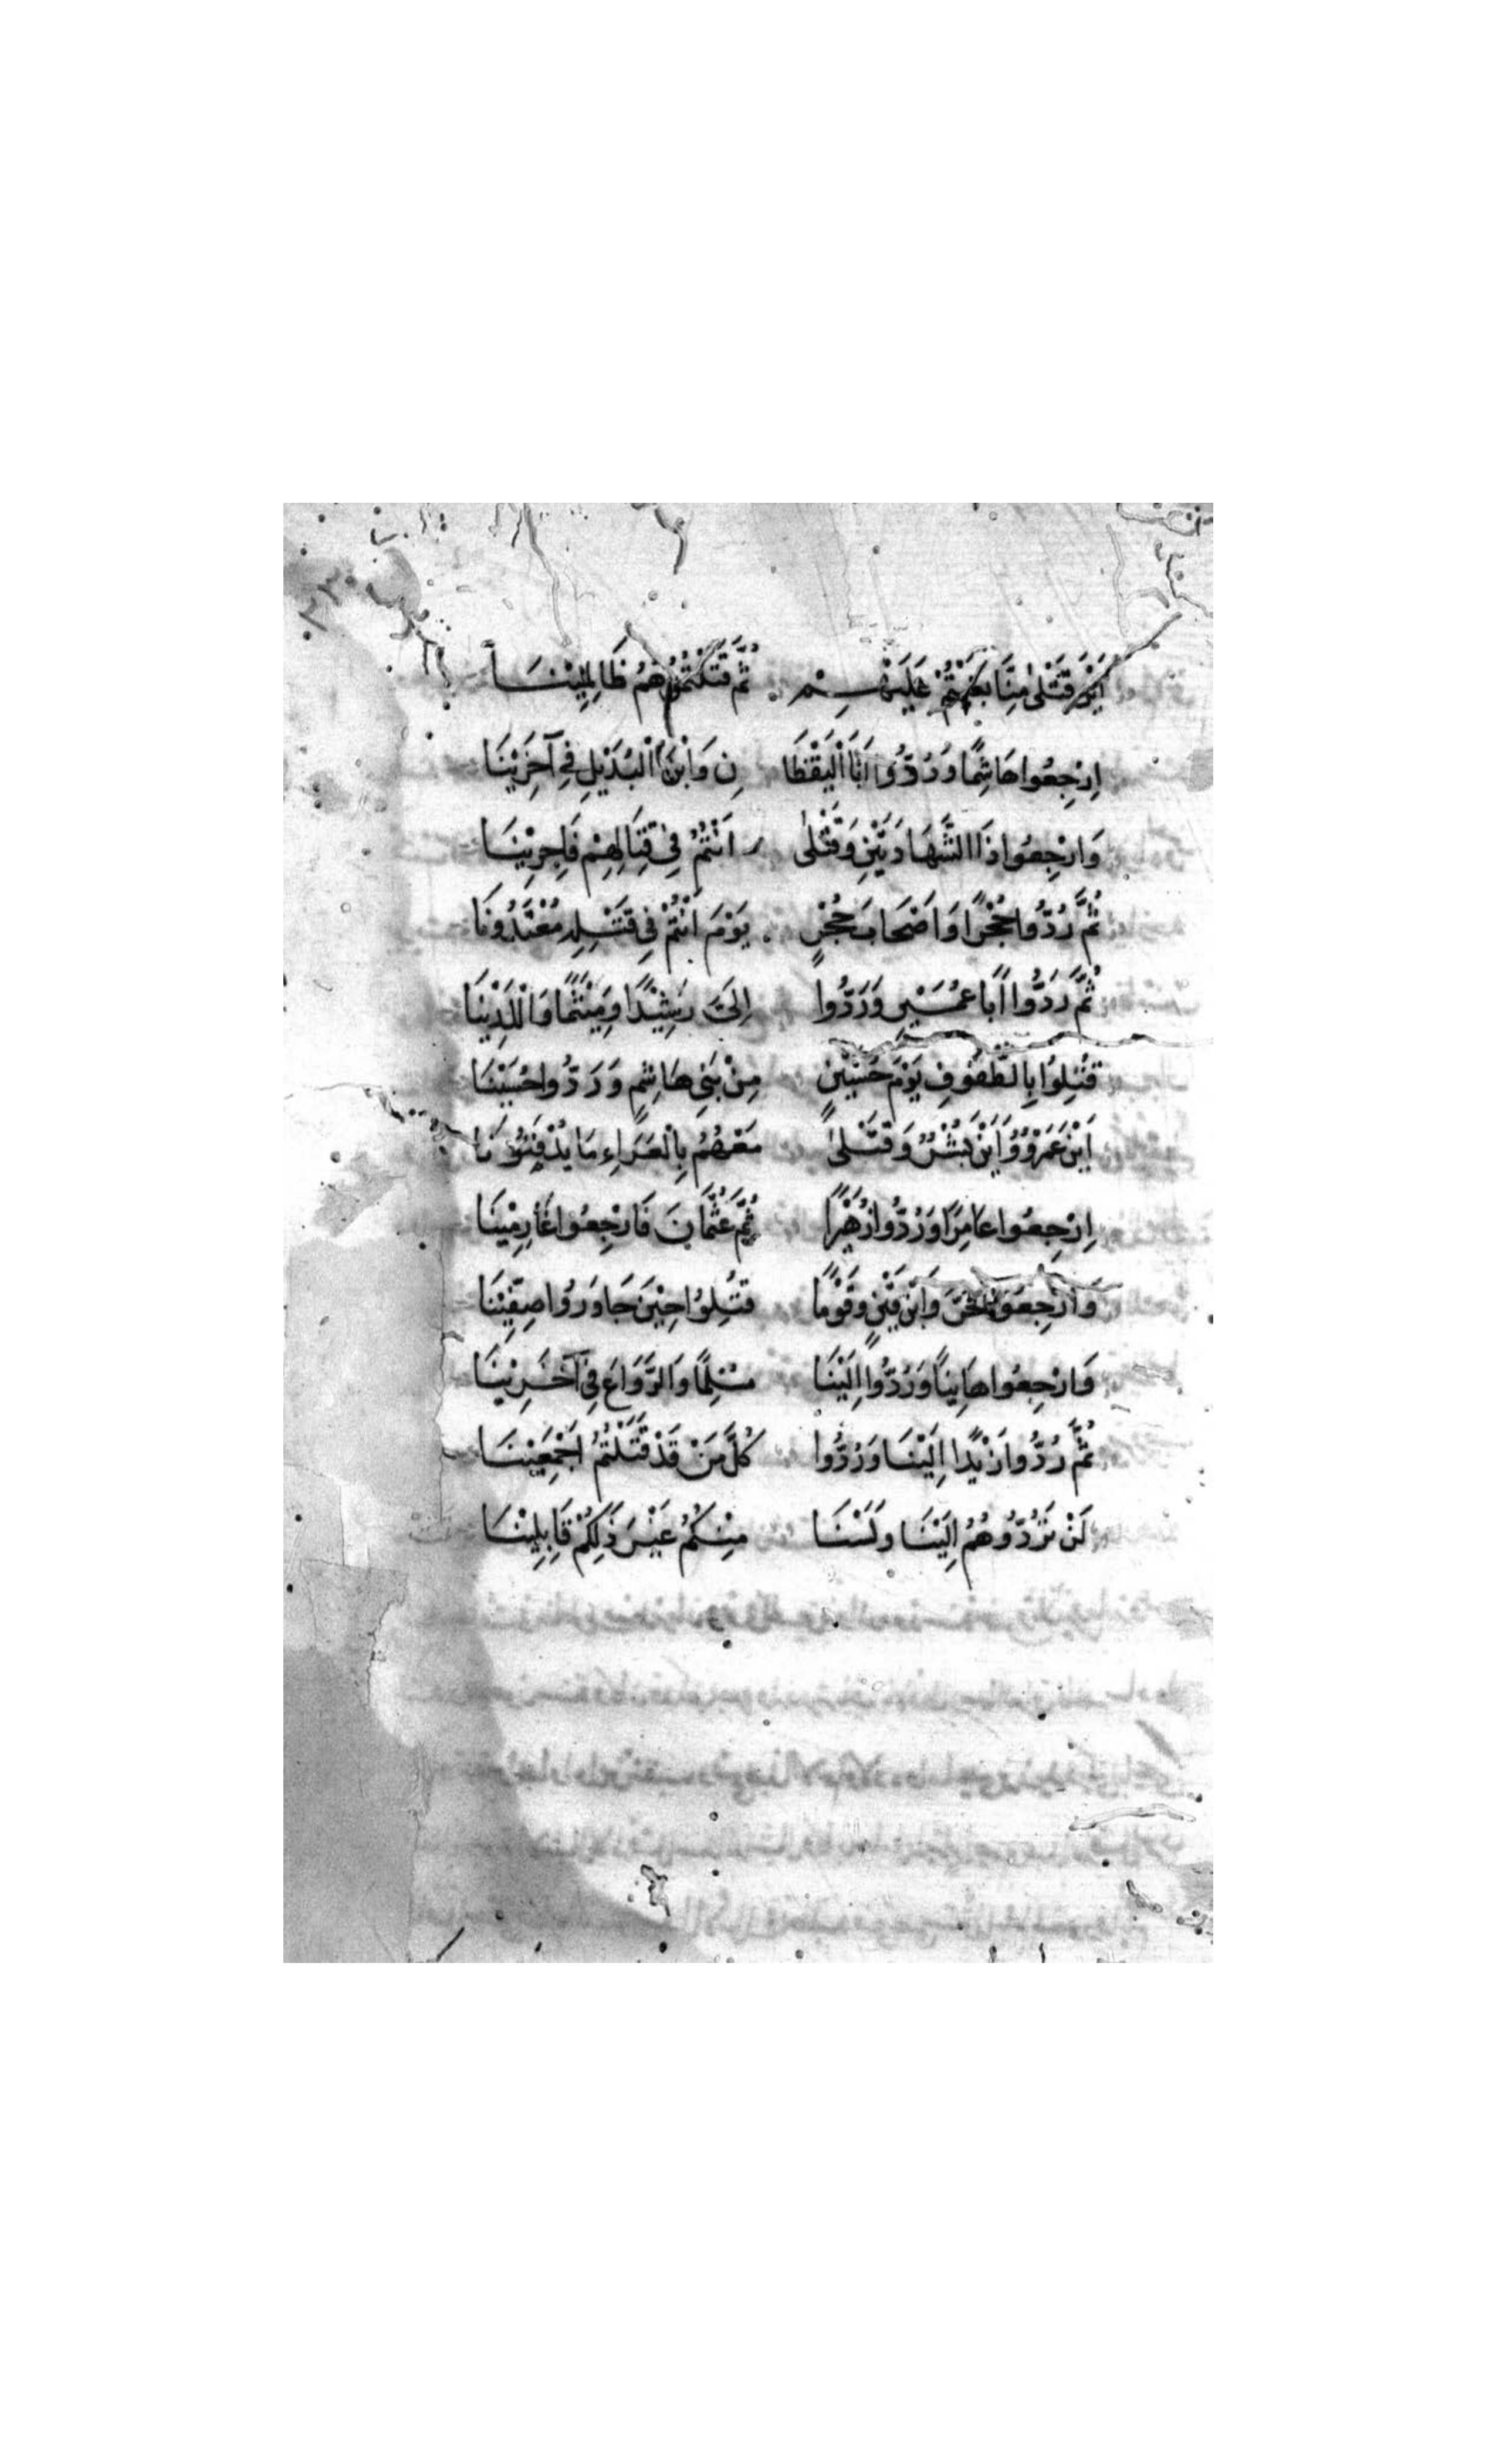 أَيْنَ قَتْلَى مِنَّا بَغَيْتُمْ عَلَيْهِمْ ثُمَّ قَتَلْتُمُوهُمْ ظَالِمِيْنَا
اِرْجِعُوا هَاشِمًا وَرُدُّوا أَبَا الْيَقْظَا نِ وَابْنَ الْبُدَيْلِ فِي آخَرِيْنَا
وَارْجِعُوا ذَا الشَّهَادَتَيْنِ وَقَتْلَى أَنْتُمْ فِي قِتَالِهِمْ فَاجِرِيْنَا
ثُمَّ رُدُّوا حُجْرًا وَأَصْحَابَ حُجْرٍ يَوْمَ أَنْتُمْ فِي قَتْلِهِ مُعْتَدُونَا
ثُمَّ رُدُّوا أَبَا عُمَيْرٍ وَرُدُّوا إِلَيَّ رَشِيْدًا وَمِيْثَمًا وَالَّذِيْنَا
قُتِلُوا بِالطُّفُوفِ يَوْمَ حُسَيْنٍ مِنْ بَنِي هَاشِمٍ وَرُدُّوا حُسَيْنَا
أَيْنَ عَمْرٌو وَأَيْنَ بُشْرٌ وَقَتْلَى مَعَهُمْ بِالْعَرَاءِ مَا يُدْفَنُونَا
اِرْجِعُوا عَامِرًا وَرُدُّوا زُهَيْرًا ثُمَّ عُثْمَانَ فَارْجِعُوا غَارِمِيْنَا
وَارْجِعُوا الْحُرَّ وَابْنَ قَيْنٍ وَقَوْمًا قُتِلُوا حِيْنَ جَاوَرُوا صِفِّيْنَا
وَارْجِعُوا هَانِيًا وَرُدُّوا إِلَيْنَا مُسْلِمًا وَالرَّوَاعَ فِي آخَرِيْنَا
ثُمَّ رُدُّوا زَيْدًا إِلَيْنَا وَرُدُّوا كُلَّ مَنْ قَدْ قَتَلْتُمُ أَجْمَعِيْنَا
لَنْ تَرُدُّوهُمُ إِلَيْنَا وَلَسْنَا مِنْكُمُ غَيْرَ ذَلِكُمْ قَابِلِيْنَا